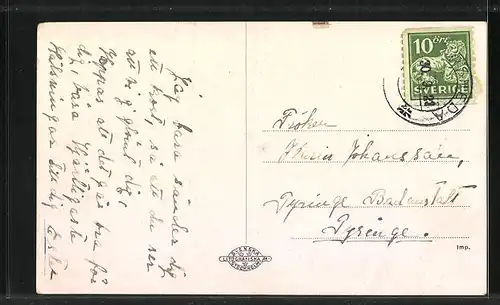 Jag bara sänder dig
ett kort, så att du ser
att vi ej glömt dig,
Hoppas att det går bra för
dig, kära
Hälsningar till dig
10 ÖRE
SVERIGE
Fröken
Karin Johansson,
Pyringe Badanstalt
Pyringe.
SVENSKA
LITOGRAFISKA A.B.
STOCKHOLM
Imp.